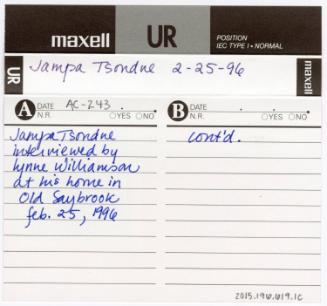 maxell UR POSITION
IEC TYPE I • NORMAL
UR Jampa Tsondue 2-25-96 maxell
A DATE AC-243
N.R. YES NO
B DATE
N.R. YES NO
Jampa Tsondue
interviewed by
Lynne Williamson
at his home in
Old Saybrook
feb. 25, 1996
cont'd.
2015.196.419.1c